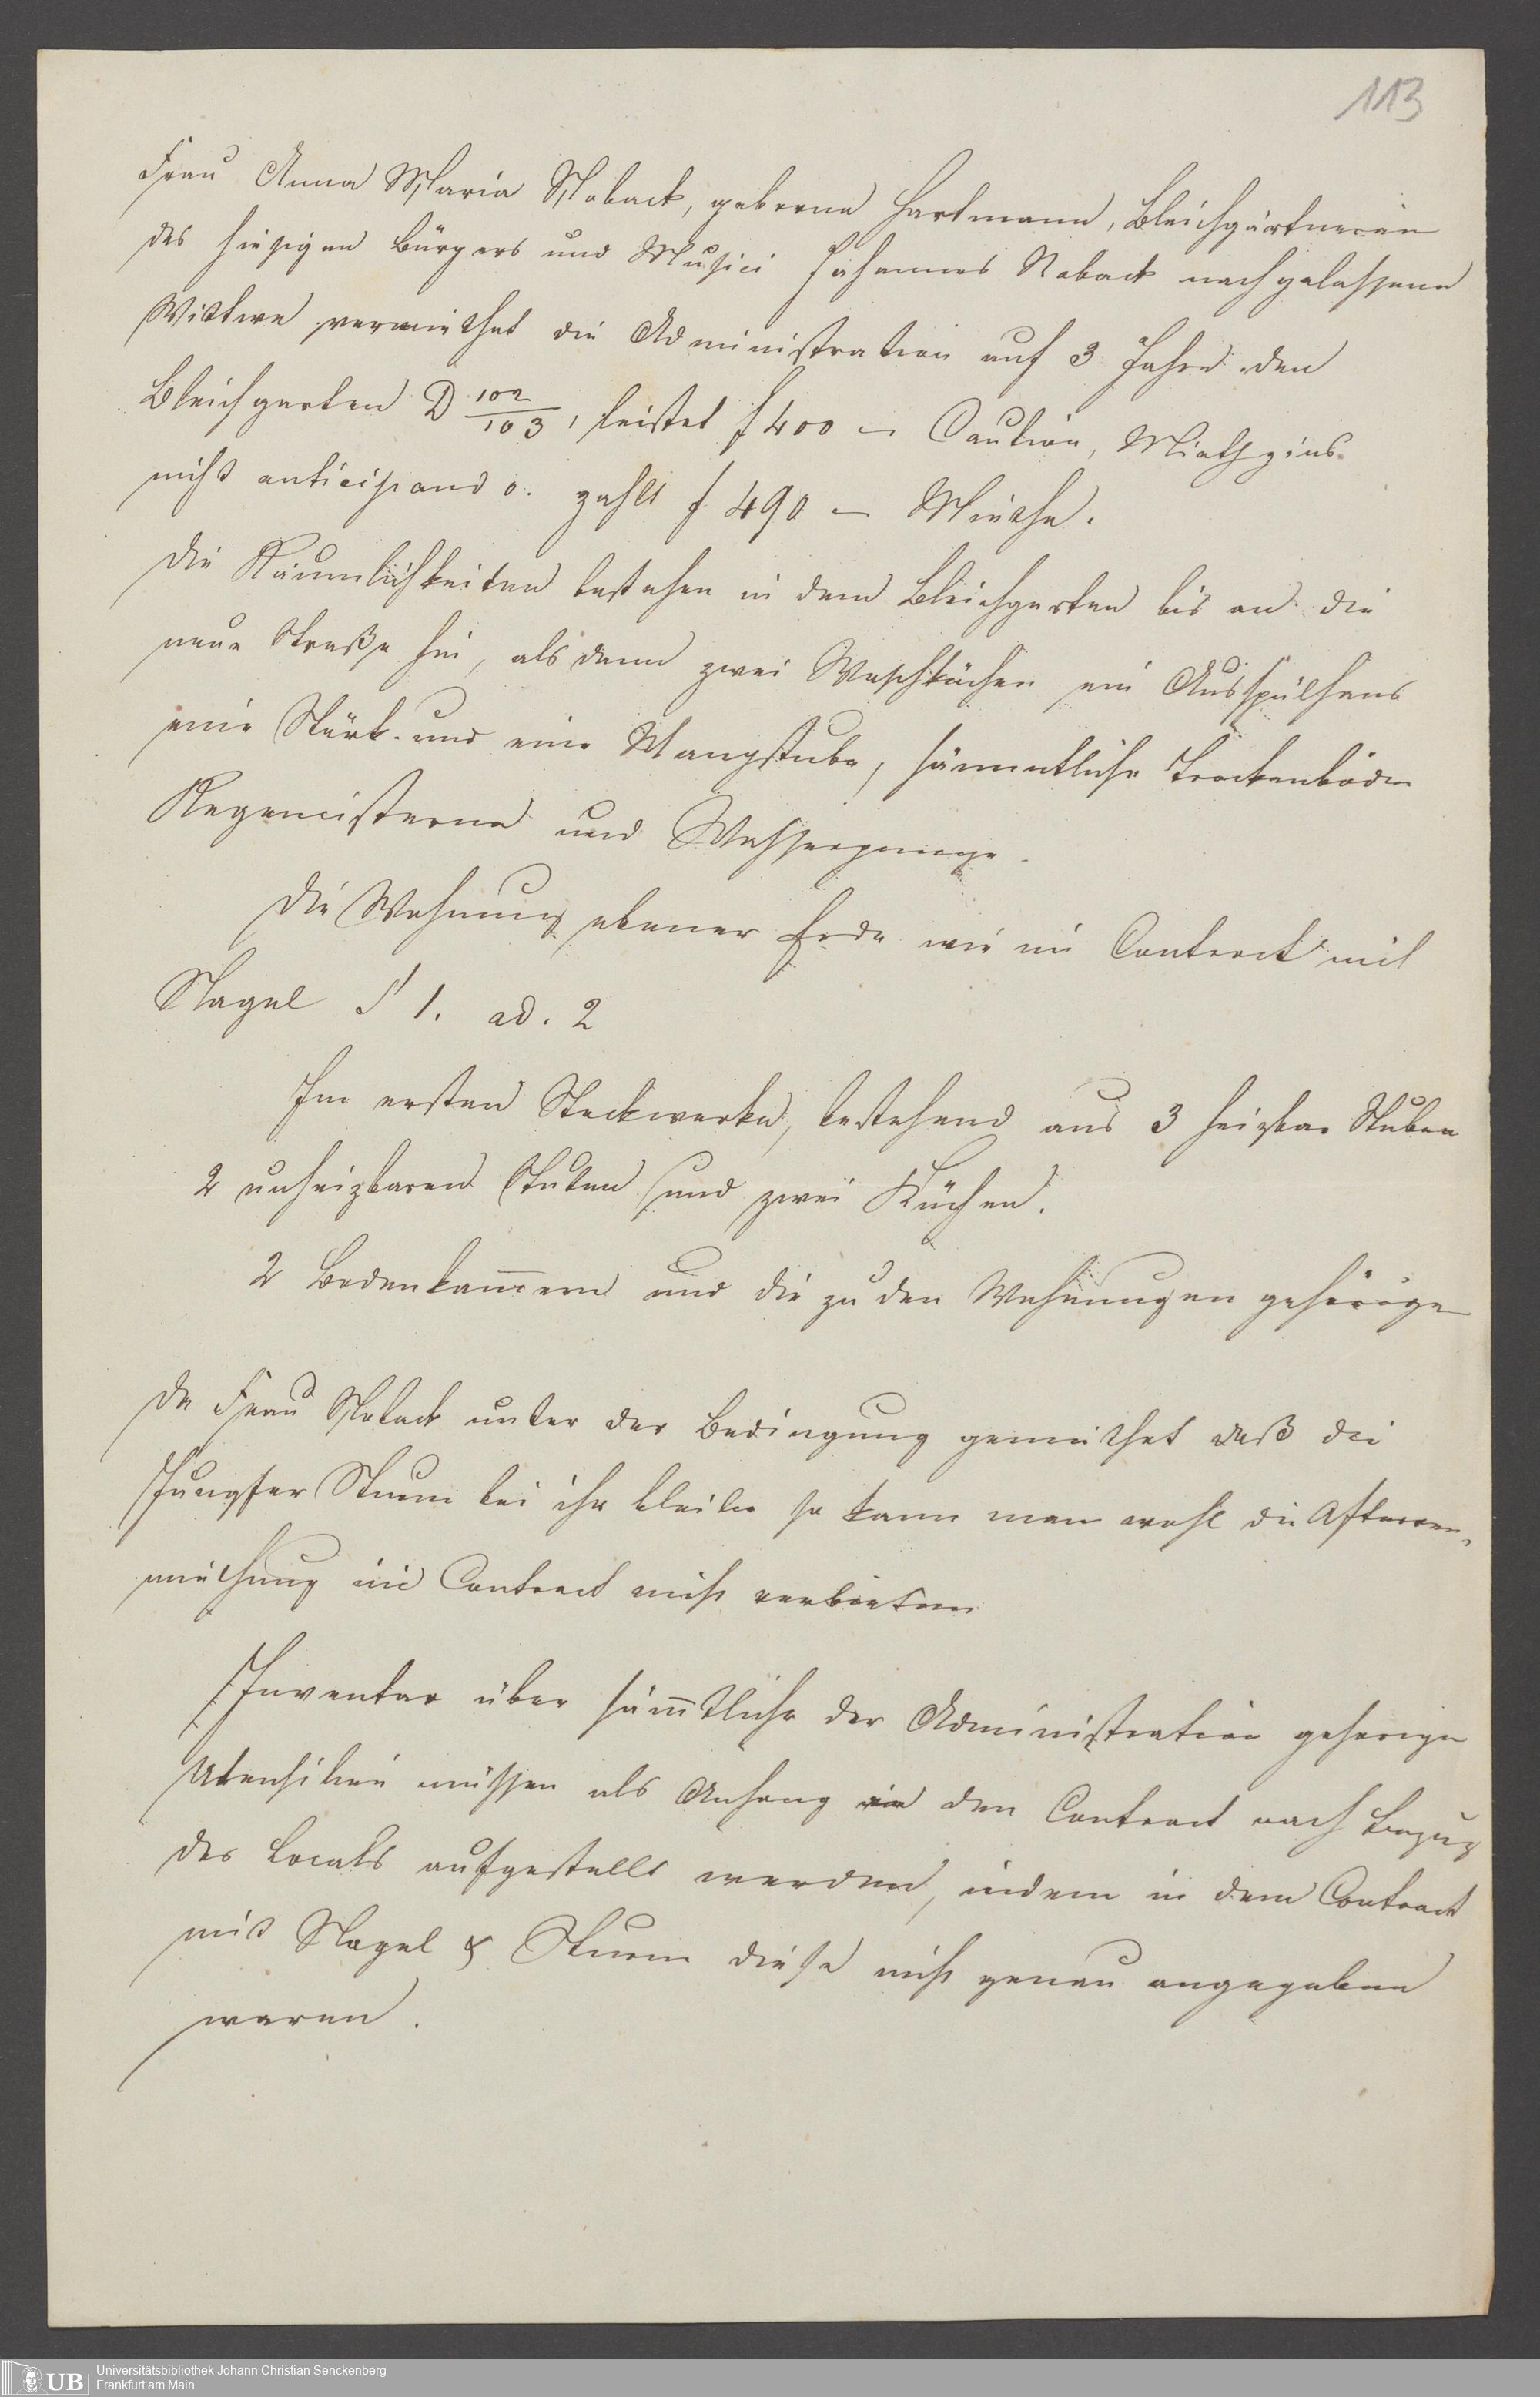 113
Frau Anna Maria Noback, geborne Hartmann, Bleichgärtnerin
des hiesigen Bürgers und Musici Johannes Noback nachgelassene
Wittwe vermiethet die Administration auf 3 Jahre den
Bleichgarten D 102/103, leistet f 400 – Caution, Miethzins
nicht anticipando. zahlt f 490 – Miethe.
Die Räumlichkeiten bestehen in dem Bleichgarten bis an die
neue Straße hin, als dann zwei Waschküchen ein Ausspülhaus
eine Stärk- und eine Mangstube, sämmtliche Trockenböden
Regencisterne und Wasserpumpe.
Die Wohnung ebener Erde wie im Contract mit
Nagel § 1. ad. 2
Im ersten Stockwerke, bestehend aus 3 heizbar Stuben
2 unheizbaren Stuben und zwei Küchen.
2 Bodenkam̅ern und die zu den Wohnungen gehörige
Da Frau Noback unter der Bedingung gemiethet daß die
Jungfer Sturm bei ihr bleibe so kann man wohl die Afterver-
miethung im Contract nicht verbieten
Inventar über säm̅tliche der Administration gehörige
Utensilien müssen als Anhang in den Contract nach Bezug
des Locals aufgestellt werden, indem in dem Contract
mit Nagel & Sturm diese nicht genau angegeben
waren.
UB
Universitätsbibliothek Johann Christian Senckenberg
Frankfurt am Main